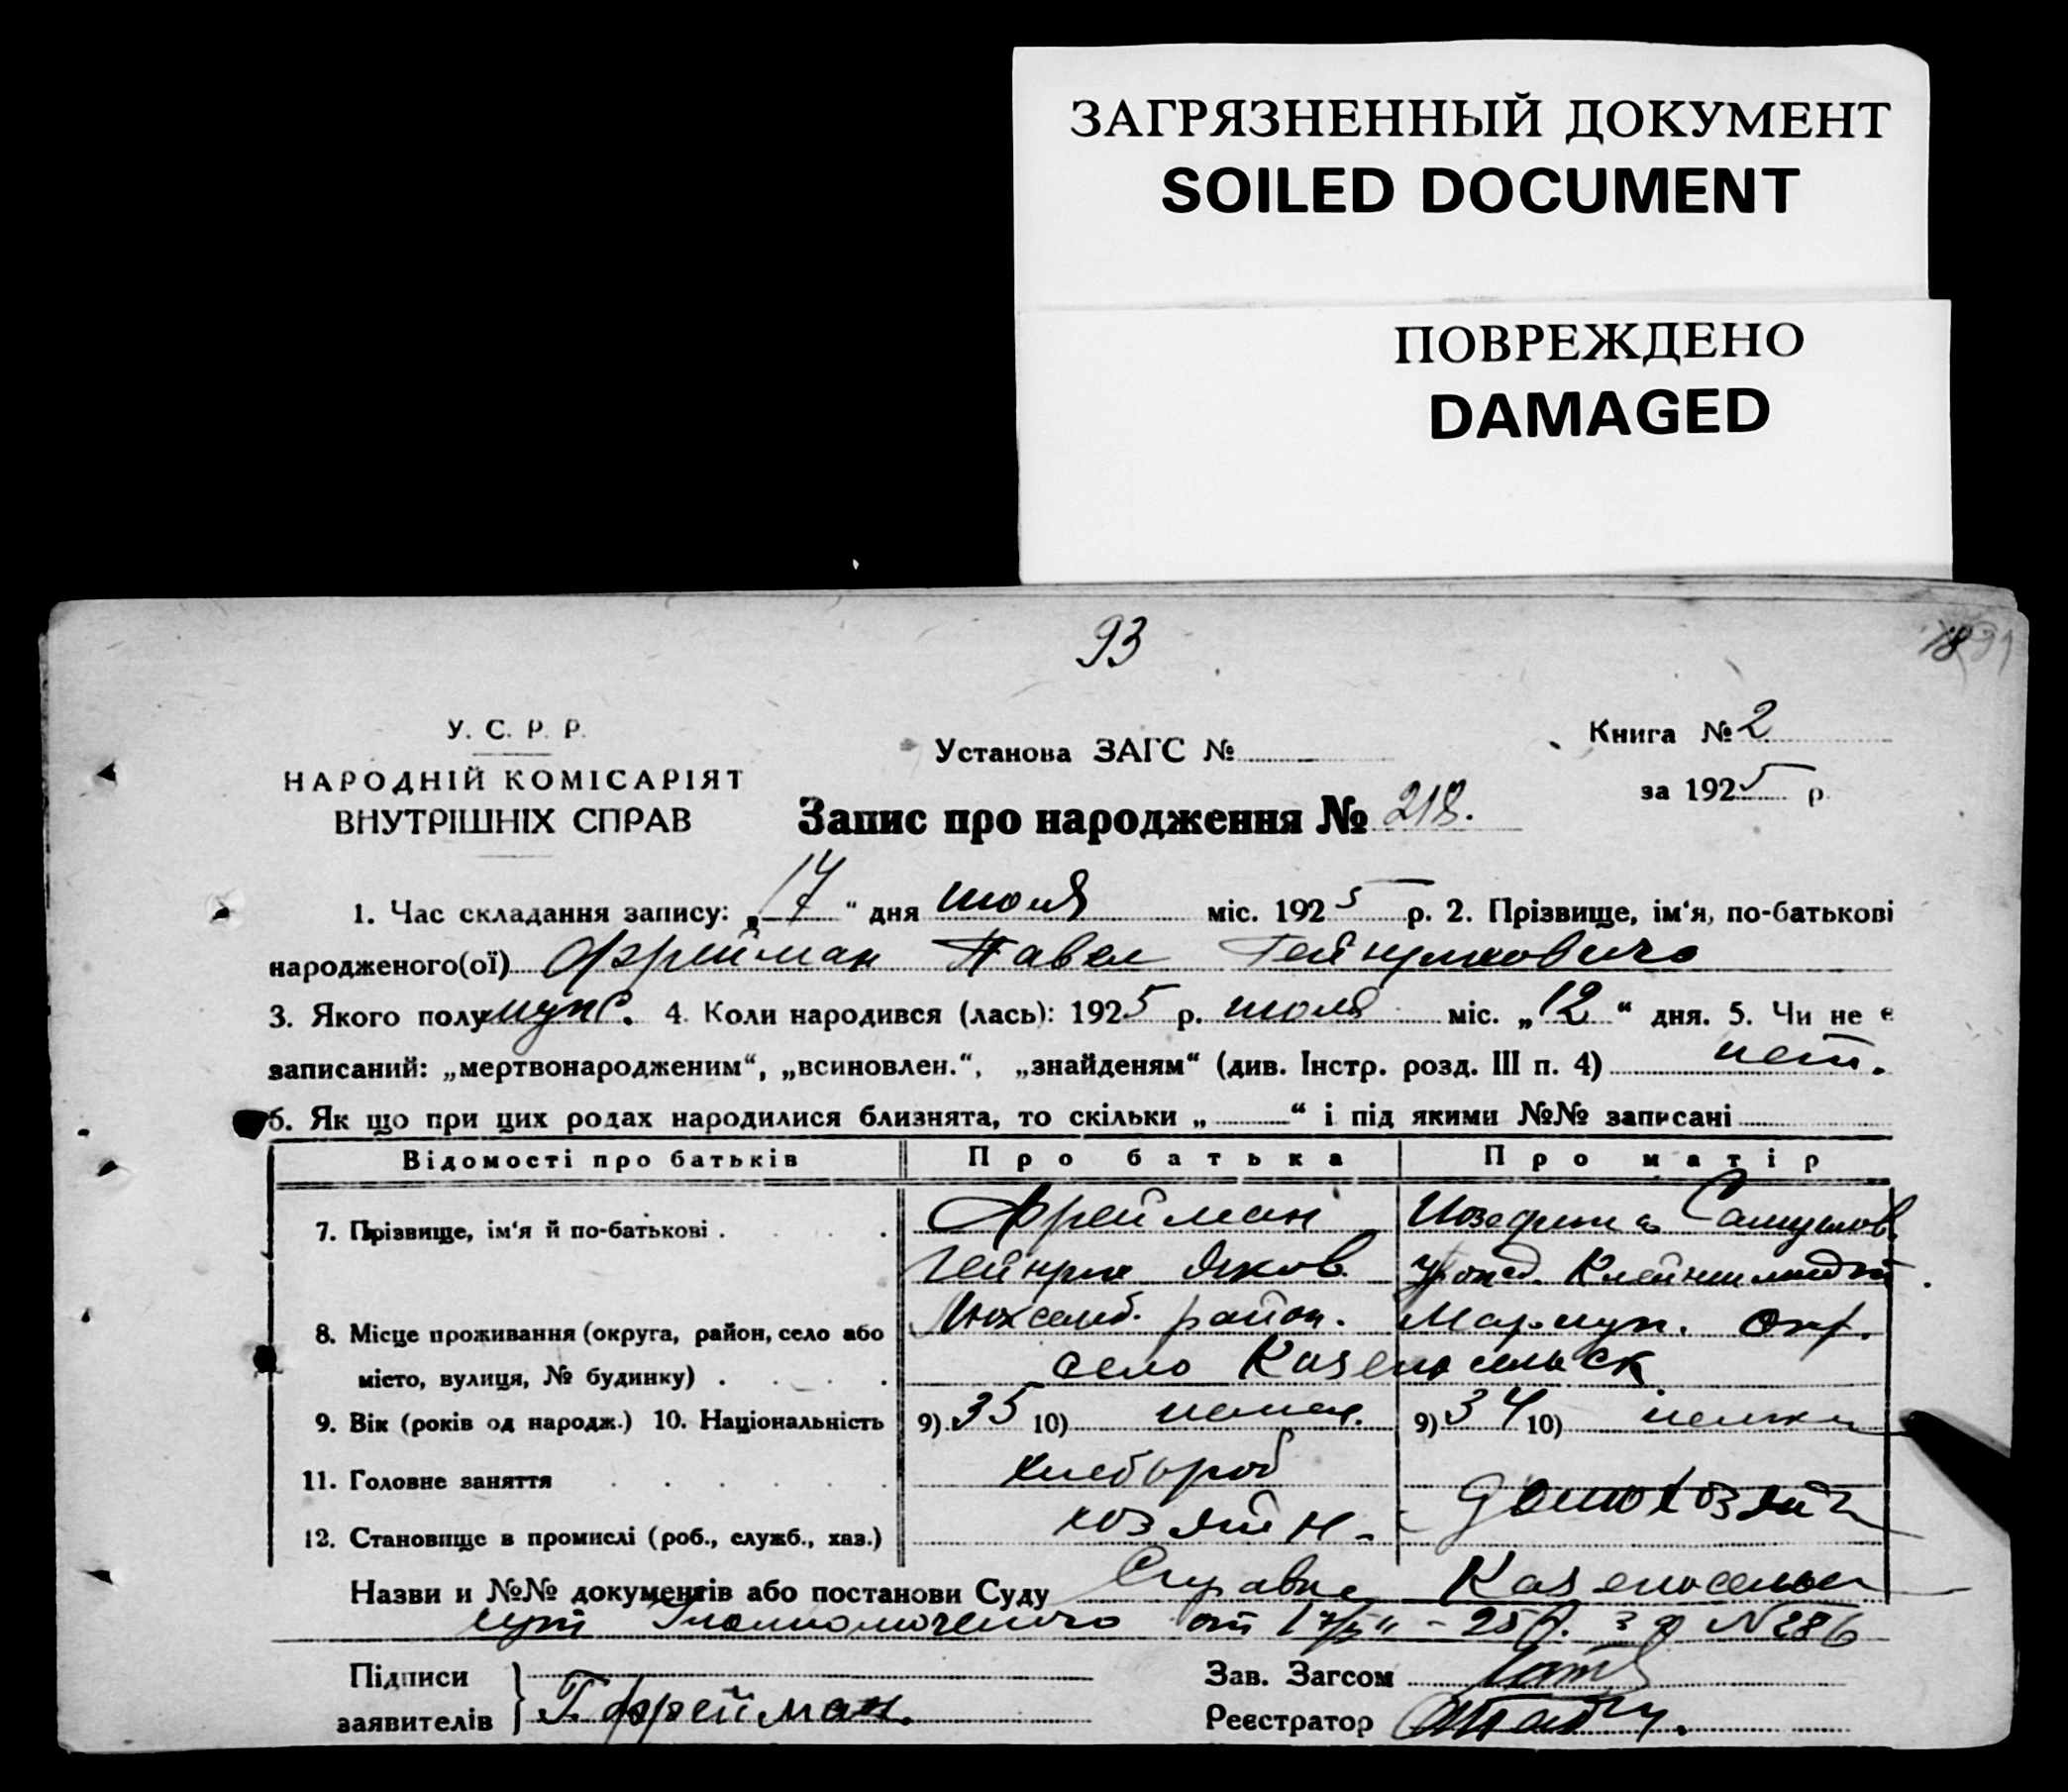 ЗАГРЯЗНЕННЫЙ ДОКУМЕНТ
SOILED DOCUMENT
ПОВРЕЖДЕНО
DAMAGED
93
У. С. Р. Р.
НАРОДНІЙ КОМІСАРІЯТ
ВНУТРІШНІХ СПРАВ
Установа ЗАГС №
Книга № 2
за 1925 р.
Запис про народження № 218.
1. Час складання запису: „17“ дня июля міс. 1925 р. 2. Прізвище, ім'я, по-батькові
народженого(ої) Фрейман Павел Гейнрихович
3. Якого полу муж. 4. Коли народився (лась): 1925 р. июля міс. „12“ дня. 5. Чи не є
записаний: „мертвонародженим“, „всиновлен.“, „знайденям“ (див. Інстр. розд. III п. 4) нет.
6. Як що при цих родах народилися близнята, то скільки „ “ і під якими №№ записані
Відомості про батьків Про батька Про матір
7. Прізвище, ім'я й по-батькові . Фрейман Иозефина Самуилов.
Гейнрих Яков. урожд.
8. Місце проживання (округа, район, село або Люксемб. район. Мариуп. Окр.
місто, вулиця, № будинку) . село
9. Вік (років од народж.) 10. Національність 9) 35 10) немец. 9) 34 10) немка
11. Головне заняття хлебороб
12. Становище в промислі (роб., служб., хаз.) хозяин - домохозяйк
Назви и №№ документів або постанови Суду Справка
от 17/VII - 25 г. за № 286
Підписи
заявителів Г. Фрейман.
Зав. Загсом
Реєстратор